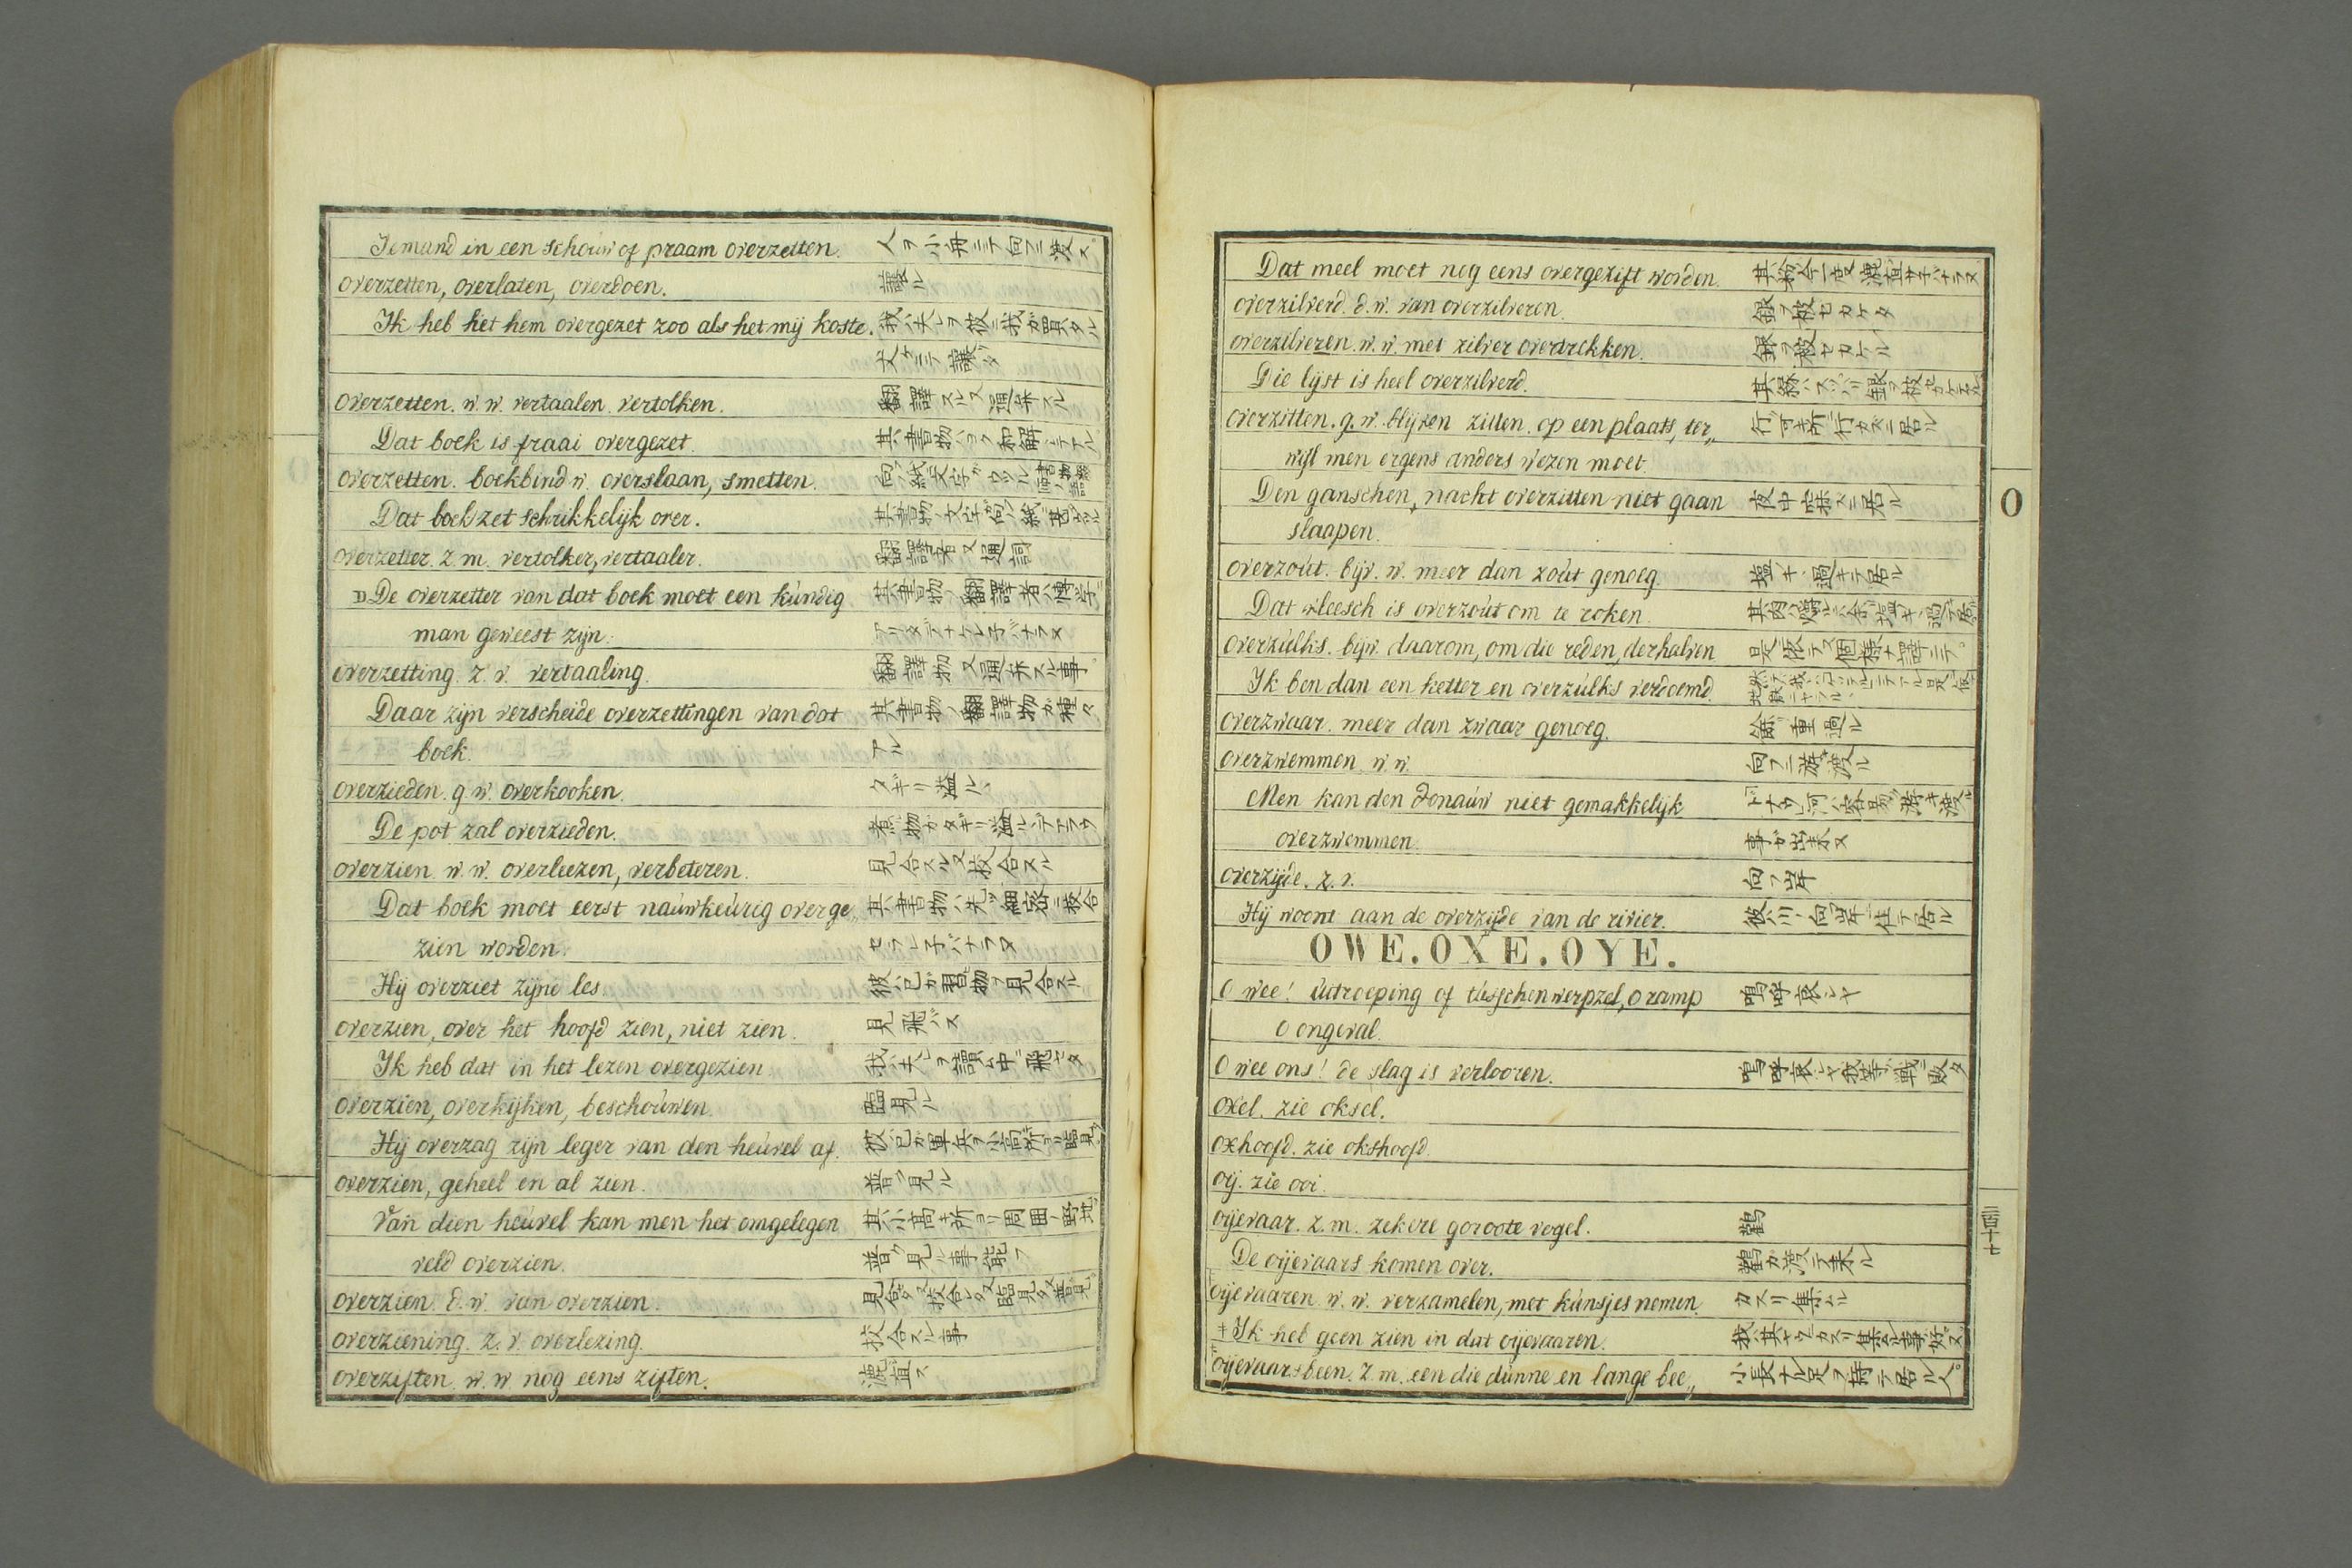 Iemand in een schouw of praam overzetten. 人ヲ小舟ニテ向フニ渡ス
overzetten, overlaten, overdoen. 譲ル
Ik heb het hem overgezet zoo als het mij koste. 我ハ夫レヲ彼ニ我ガ買タル
丈ケニテ譲ツタ
overzetten. w. w. vertaalen. vertolken. 翻譯スル又通弁スル
Dat boek is fraai overgezet. 其書物ハヨク和解シテアル
overzetten. boekbind w. overslaan, smetten.
Dat boek zet schrikkelijk over.
overzetter. z. m. vertolker, vertaaler. 翻譯者又通詞
De overzetter van dat boek moet een kundig 其書物ノ翻譯者ハ博学
man geweest zijn. アリタデナケレバナラヌ
overzetting. z. v. vertaaling. 翻譯物又通弁スル事
Daar zijn verscheide overzettingen van dat 其書物ノ翻譯物ガ種々
boek. アル
overzieden. g. w. overkooken. タギリ溢ル
De pot zal overzieden. 煮物ガタギリ溢ルデアラウ
overzien. w. w. overleezen, verbeteren. 見合スル又挍合スル
Dat boek moet eerst nauwkeurig overge„ 其書物ハ先ヅ細密ニ挍合
zien worden. セラレ子バナラヌ
Hij overziet zijne les. 彼ハ己ガ習物ヲ見合スル
overzien, over het hoofd zien, niet zien. 見飛バス
Ik heb dat in het lezen overgezien 我ハ夫レヲ讀ム中ニ飛シタ
overzien, overkijken, beschouwen. 臨見ル
Hij overzag zijn leger van den heuvel af. 彼ハ己ガ軍兵ヲ小高所ヨリ臨見タ
overzien, geheel en al zien. 普ク見ル
Van dien heuvel kan men het omgelegen 其小高キ所ヨリ周囲ノ野地ヲ
veld overzien. 普ク見ル事能フ
overzien. d. w. van overzien.
overziening. z. v. overlezing. 挍合スル事
overziften. w. w. nog eens ziften. 漉直ス
Dat meel moet nog eens overgezift worden.
overzilverd. d. w. van overzilveren. 銀ヲ被セカケタ
overzilveren. w. w. met zilver overtrekken. 銀ヲ被セカケル
Die lijst is heel overzilverd.
overzitten. g. w. blijven zitten. op een plaats, ter„ 行可キ所ニ行カズニ居ル
wijl men ergens anders wezen moet.
Den ganschen nacht overzitten niet gaan 夜中寐ズニ居ル
slaapen.
overzout. bijv. w. meer dan zout genoeg. 塩ケキ過キテ居ル
Dat vleesch is overzout om te roken.
overzulks. bijw. daarom, om die reden, derhalven
Ik ben dan een ketter en overzulks verdoemd.
overzwaar. meer dan zwaar genoeg. 餘リ重過ル
overzwemmen. w. w. 向フニ游渡ル
Men kan den Donauw niet gemakkelijk ドナウ河ハ容易ク游キ渡ル
overzwemmen. 事ガ出来ヌ
overzijde. z. v. 向フ岸
Hij woont aan de overzijde van de rivier. 彼ハ川ノ向フ岸ニ住テ居ル
OWE. OXE. OYE.
O wee! uitroeping of tusschenwerpzel, o ramp 嗚呼哀シヤ
o ongeval.
O wee ons! de slag is verlooren. 嗚呼哀シヤ我等ハ戦ニ敗タ
oxel. zie oksel.
oxhoofd. zie okshoofd.
oij. zie ooi.
oijevaar. z. m. zekere goroote vogel. 鸛
De oijevaars komen over. 鸛ガ渡テ来ル
oijevaaren. w. w. verzamelen, met kunsjes nemen. カスリ集ムル
Ik heb geen zien in dat oijevaaren.
oijevaarsbeen. z. m. een die dunne en lange bee„ 小長ナル足ヲ持テ居ル人
O